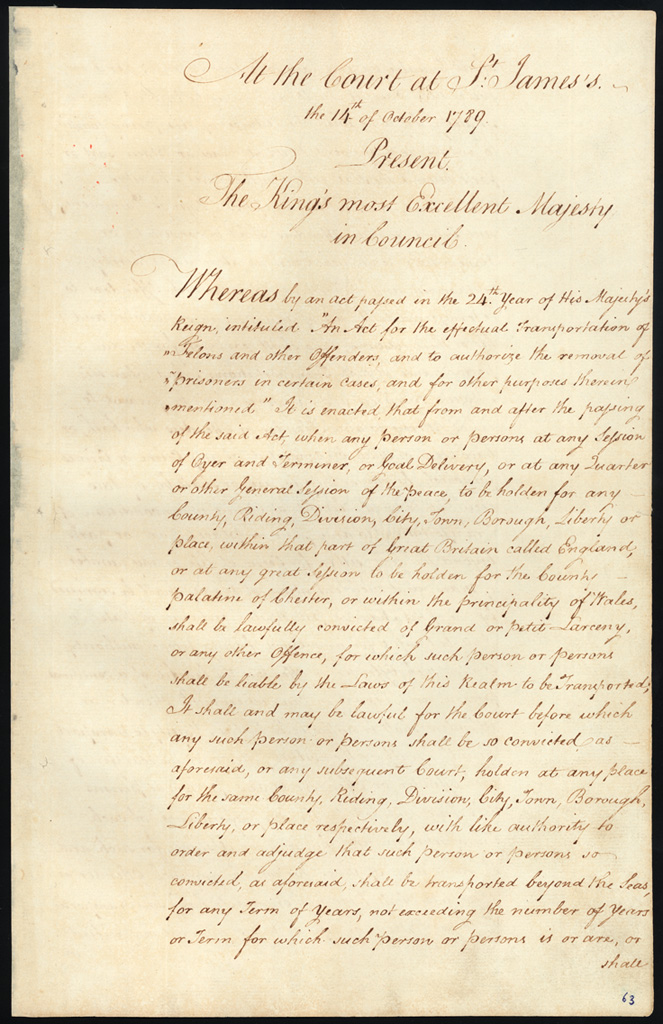 At the Court at St. James's.
the 14th of October 1789.
Present.
The King's most Excellent Majesty
in Council.
Whereas by an act passed in the 24th Year of His Majesty's
Reign, intituled "An Act for the effectual Transportation of
"Felons and other Offenders, and to authorize the removal of
"prisoners in certain cases, and for other purposes therein
"mentioned" It is enacted, that from and after the passing
of the said Act, when any person or persons at any Session
of Oyer and Terminer, or Goal Delivery, or at any Quarter
or other General Session of the peace, to be holden for any
County, Riding, Division, City, Town, Borough, Liberty or
place, within that part of Great Britain called England,
or at any great Session to be holden for the County
palatine of Chester, or within the principality of Wales,
shall be lawfully convicted of Grand or petit Larceny,
or any other Offence, for which such person or persons
shall be liable by the Laws of this Realm to be Transported;
It shall and may be lawful for the Court before which
any such person or persons shall be so convicted as
aforesaid, or any subsequent Court, holden at any place
for the same County, Riding, Division, City, Town, Borough,
Liberty, or place respectively, with like authority to
order and adjudge that such person or persons so
convicted, as aforesaid, shall be transported beyond the Seas,
for any Term of Years, not exceeding the number of Years
or Term for which such person or persons is or are, or
shall
63